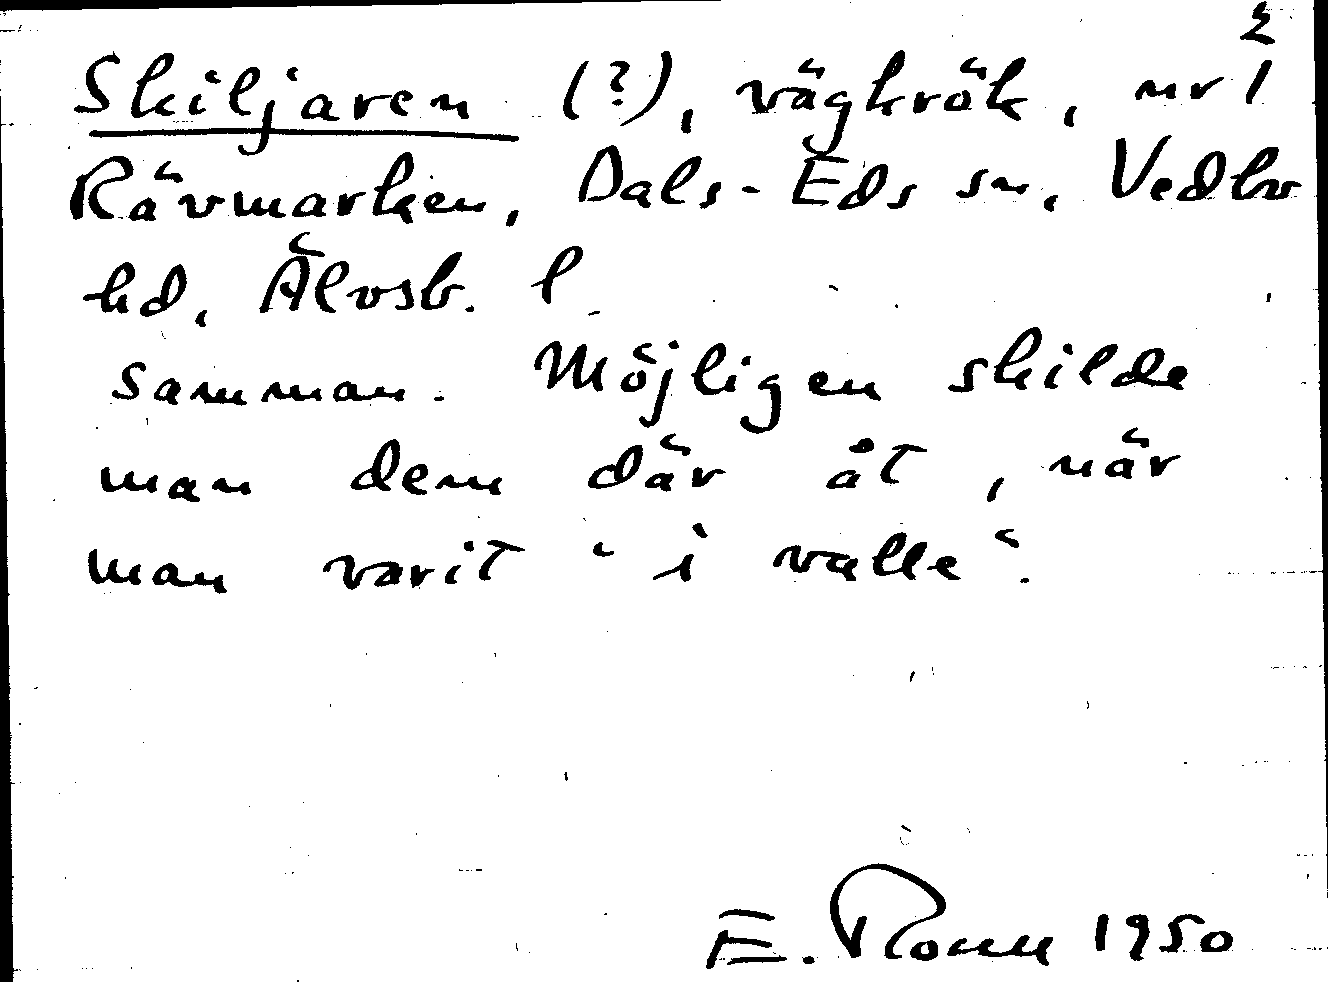 2
Skiljaren (?), vägkrök, nr 1
Rävmarken, Dals-Eds sn, Vedbo
hd, Älvsb. l
samman. Möjligen skilde
man dem där åt, när
man varit "i valle".
E. Ronn 1950